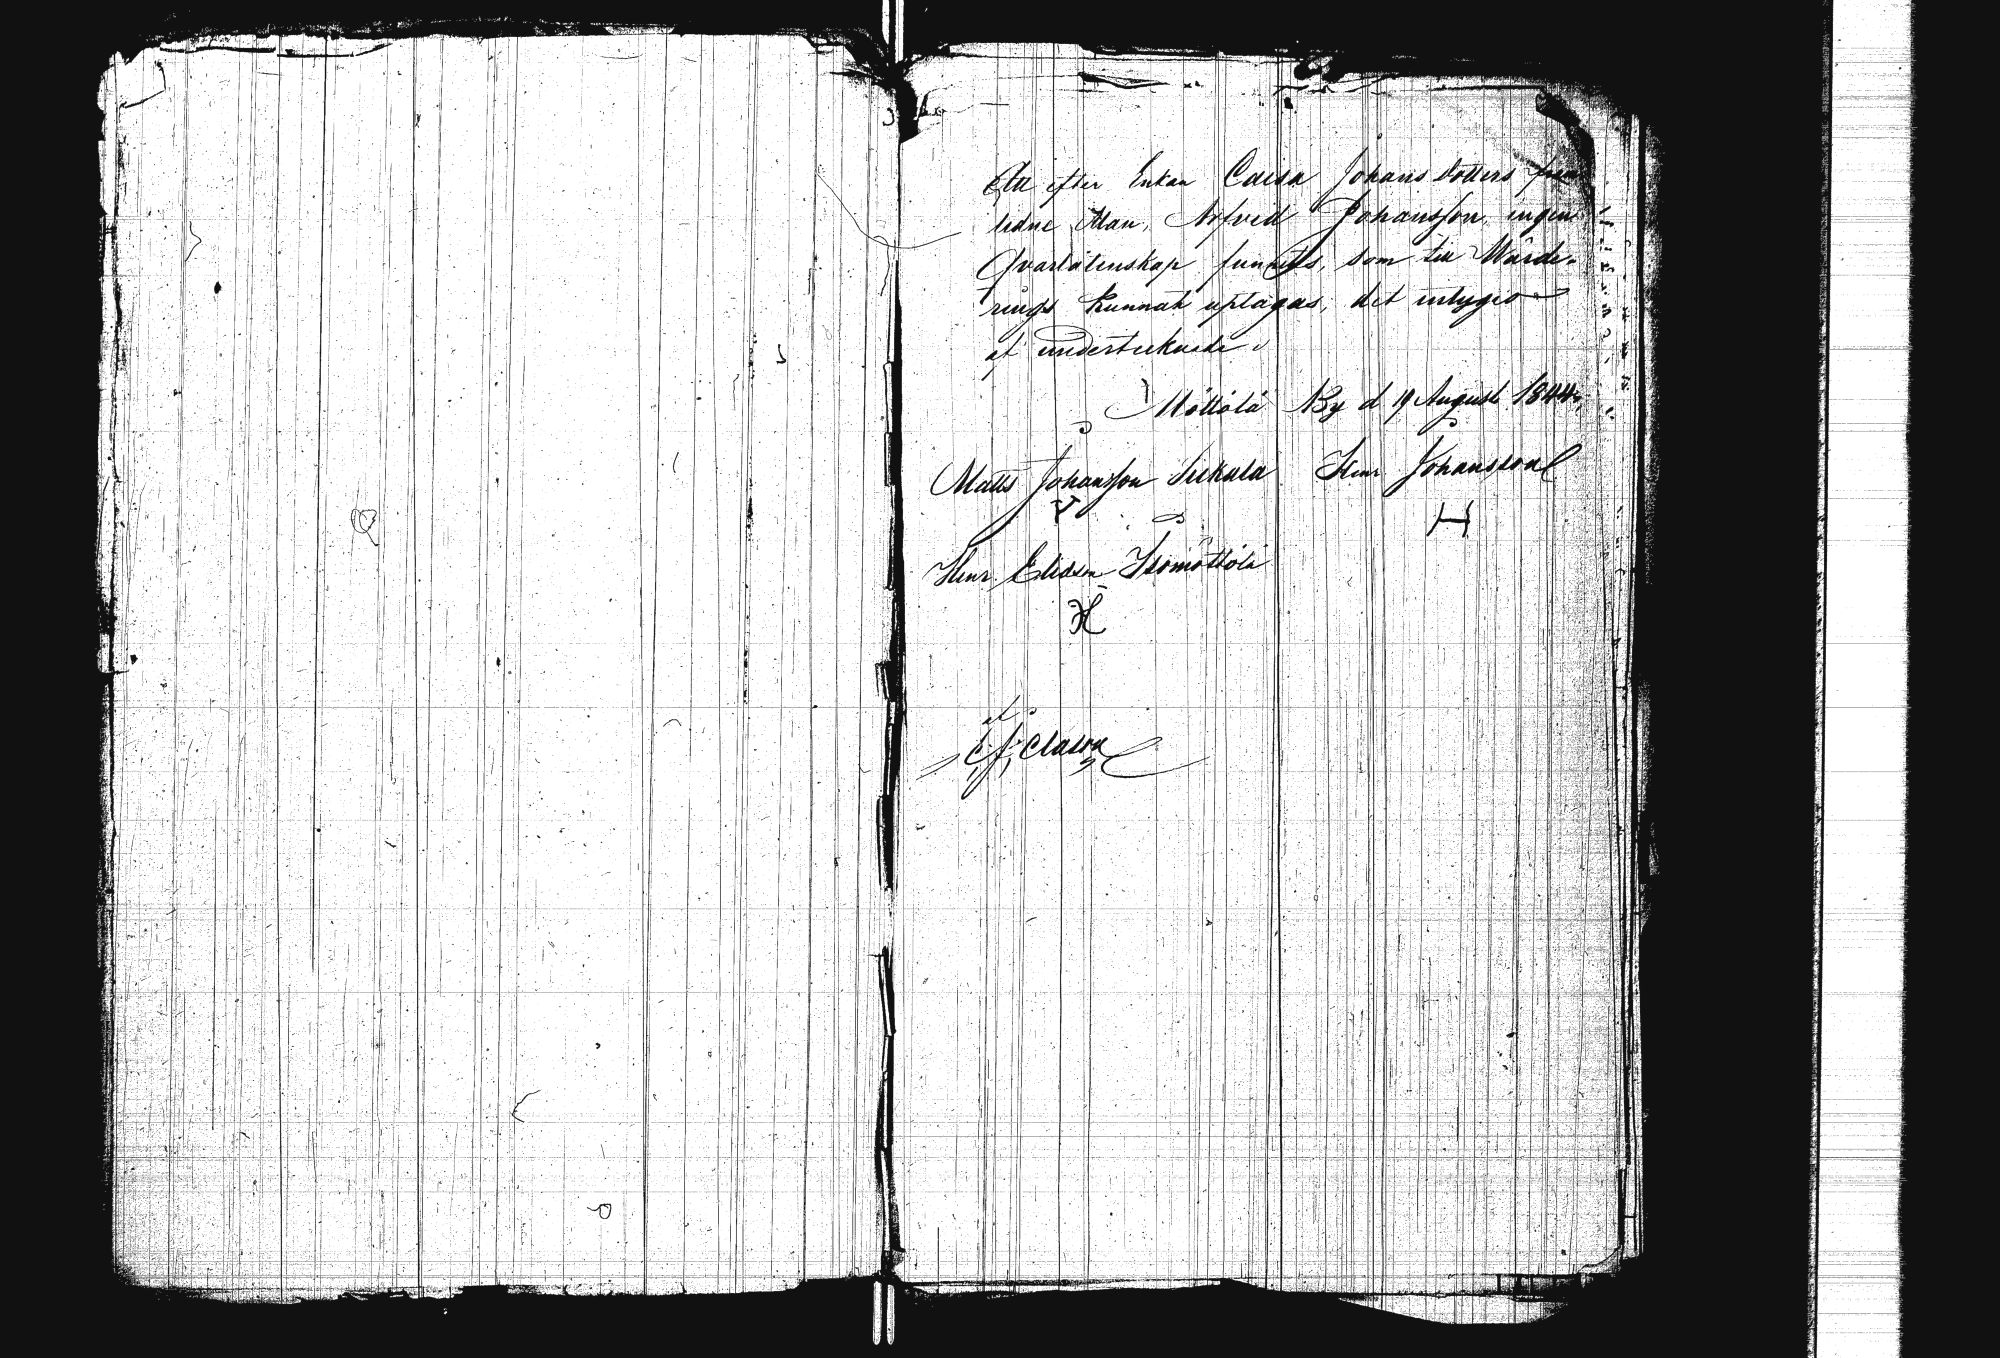 Att efter Enkan Caisa Johans dotters fram
lidne Man, Arfved Johansson, ingen
Qvarlåtenskap funnits, som till Wärde-
rings kunnat uptagas, det intygas
af undertecknade.
Möttölä By d 19 August 1844.
Matts Johansson Seikula Henr Johansson
H
Henr Elidson Isomöttölä
af
C. J. Clason